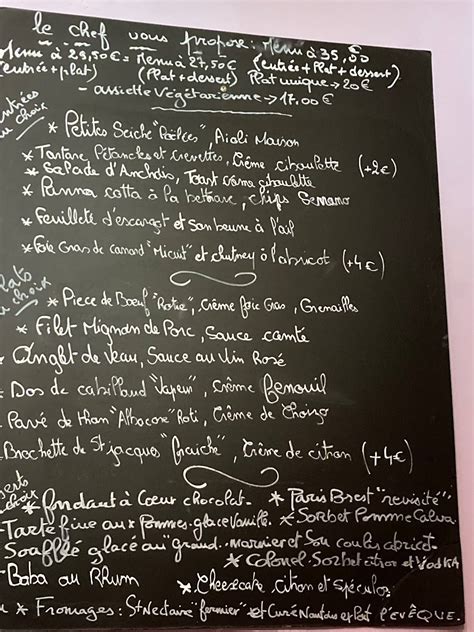 le chef vous propose:
Menu à 29,50€ = Menu à 27,50€ Menu à 35,00
(entrée+plat) (Plat+dessert) (entrée + Plat + dessert)
Plat unique → 20€
- assiette Végétarienne → 17,00€
entrées
au choix
* Petites Seiche "Poêlées", Aïoli Maison
* Tartare Pétoncles et crevettes, Crème ciboulette (+2€)
* Salade d'Anchois, Toast crème ciboulette
* Panna cotta à la betterave, chips Serrano
* Feuilleté d'escargot et son beurre à l'ail
* Foie Gras de canard "Micuit" et chutney à l'abricot (+4€)
Plats
au choix
* Piece de Boeuf "Rotie", Crème foie Gras, Grenailles
* Filet Mignon de Porc, Sauce comté
Onglet de Veau, Sauce au Vin Rosé
- Dos de cabillaud "Vapeur", Crème Fenouil
- Pavé de thon "Albacore" Roti, Crème de Chorizo
Brochette de St jacques "fraiche", Crème de citron (+4€)
Desserts
au choix
* Fondant à Cœur chocolat - * Paris Brest "revisité"
- Tarte fine aux Pommes - glace Vanille. * Sorbet Pomme Calva
- Soufflé glacé au "grand-marnier et Son coulis abricot -
* Colonel - Sorbet citron et Vodka
- Baba au Rhum * Cheesecake citron et spéculos
* Fromages : St Nectaire "fermier" et Curé Nantais et Pont l'Evêque.